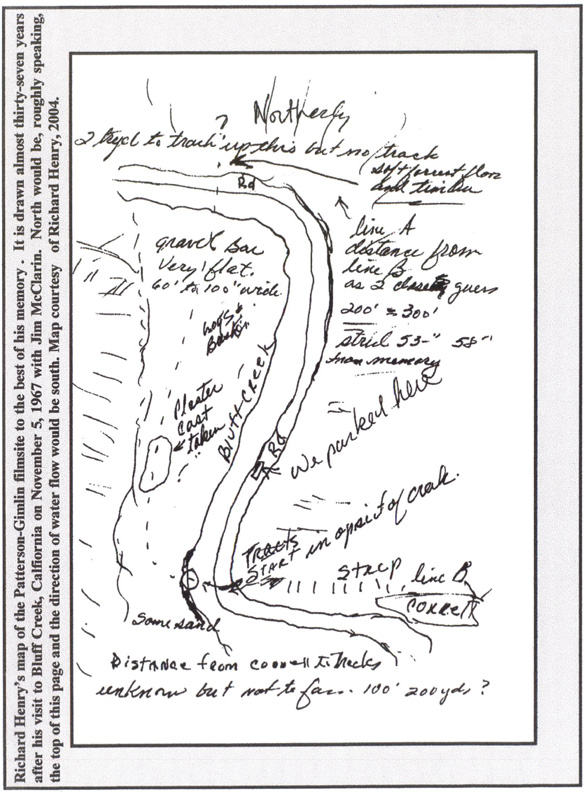 Richard Henry's map of the Patterson-Gimlin filmsite to the best of his memory . It is drawn almost thirty-seven years
after his visit to Bluff Creek, Calfiornia on November 5, 1967 with Jim McClarin. North would be, roughly speaking,
the top of this page and the direction of water flow would be south. Map courtesy of Richard Henry, 2004.
?
Northerly
I tryed to track up this but no track
soft forrest floor
and timber
Rd
line A
distance from
line B
as I guess
200' = 300'
strid 53-" 58"
from memory
gravel Bar
Very flat.
60' to 100" wide
logs &
Plaster
cast
taken
Bluff CREEK
Rd
We parked here
TRACKS
START in opsit of creak.
STREP line B
CORRELL
Some sand
Distance from correll to tracks
unknown but not to far. 100' 200yds ?